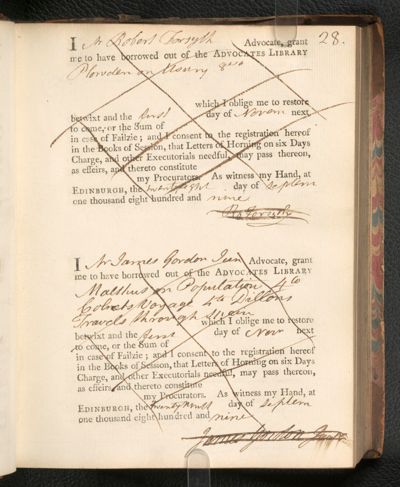 28.
I Mr Robert Forsyth Advocate, grant
me to have borrowed out of the ADVOCATES LIBRARY
Plowden on Usury 8vo
which I oblige me to restore
betwixt and the first day of Novem next
to come, or the Sum of
in case of Failzie; and I consent to the registration hereof
in the Books of Session, that Letters of Horning on six Days
Charge, and other Executorials needful, may pass thereon,
as effeirs, and thereto constitute
my Procurators. As witness my Hand, at
EDINBURGH, the twenty eight day of Septem
one thousand eight hundred and nine
Ro Forsyth
I Mr James Gordon Jun Advocate, grant
me to have borrowed out of the ADVOCATES LIBRARY
Malthus on Population 4to
Voyage 4to Dillons
Travels through Spain
which I oblige me to restore
betwixt and the first day of Nov next
to come, or the Sum of
in case of Failzie; and I consent to the registration hereof
in the Books of Session, that Letters of Horning on six Days
Charge, and other Executorials needful, may pass thereon,
as effeirs, and thereto constitute
my Procurators. As witness my Hand, at
EDINBURGH, the twenty ninth day of Septem
one thousand eight hundred and nine
James Gordon Junr